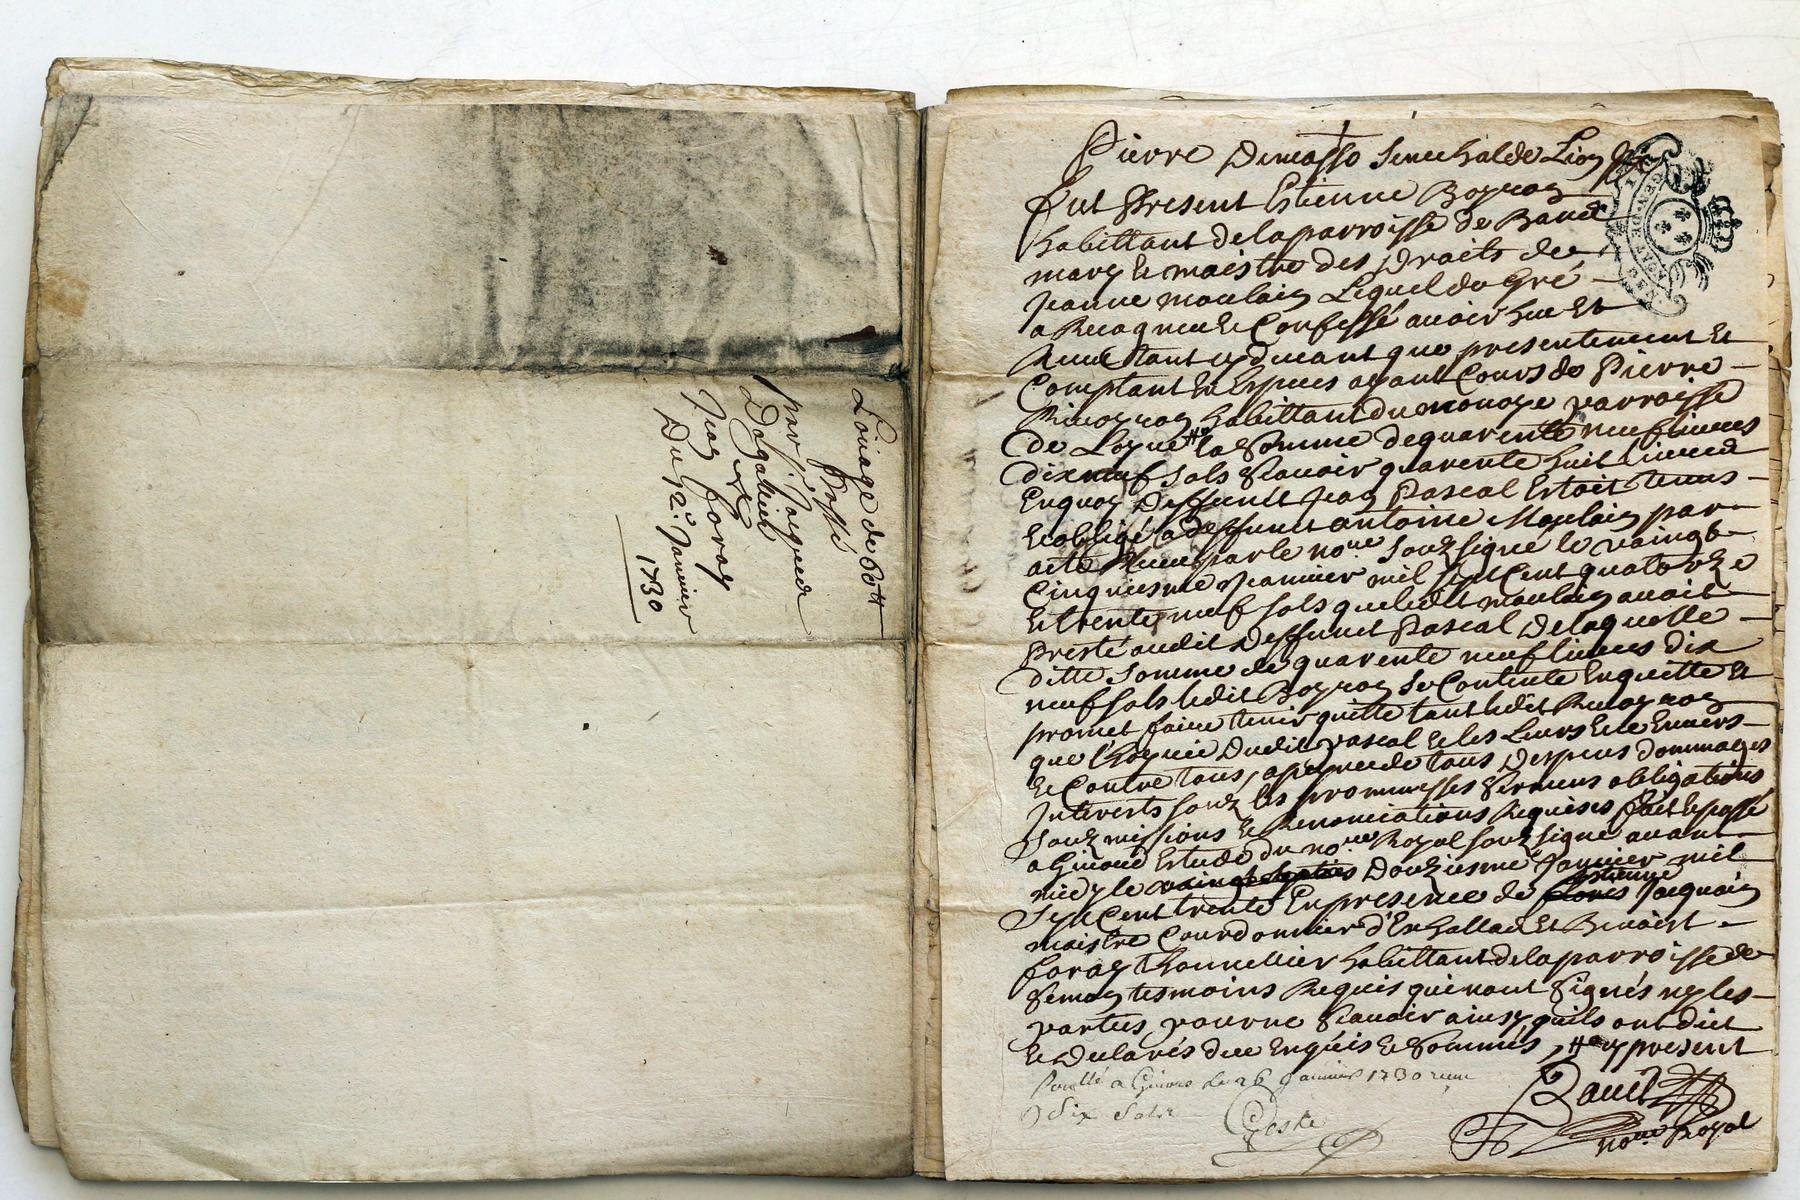 Louage de 60tt
passé
par j. Jaqued
Dagallier
et
Jean foray
Du 12e Janvier
1730
Pierre Demasso Senechal de Lion
fut Present Estienne Boyron
habittant delaparroisse de
mary et maistre des Droits de
Jeanne moulain Lequel de Gré
a Recogneu et Confessé avoir heu et
Receu tant cydevant que presentement et
Comptant en Especes ayant Cours de Pierre
habittant du parroisse
de la Somme dequarente neuf livres
dixneuf sols scavoir quarente huit livres
Enquoy Deffunct Jean Pascal Estoit tenus
et obligé a deffunct antoine Moulain par
acte Receu par le nore souzsigné le vaingt
Cinquiesme Jeanvier mil sept Cent quatorze
et trente neuf sols queledit moulain avoit
Presté audit Deffunct Pascal Delaquelle
ditte somme de quarente neuf livres dix
neuf sols ledit Boyron se Contente Enquitte et
promet faire tenir quitte tant ledit
que Dudit pascal et les Leurs et Envers
et Contre tous, apeyne de tous Despens dommages
Interests souz les prommesses serments obligations
souzmissions et Renonciations Requises fait et passé
a Givord Estude du nore Royal souzsigné avant
midy le Douziesme Janvier mil
Sept Cent trente En presence de Estienne Jacquain
maistre Courdonnier d'Enhallad et Benoist
foray thonnellier habittant delaparroisse de
tesmoins Requis qui nont Signés ny les
parties pour ne Scavoir ainsy quils ont dict
et Declarés de ce Enquis et Sommés,
a Givors le 26 Janvier 1730
Six Sols
Coste
nore Royal